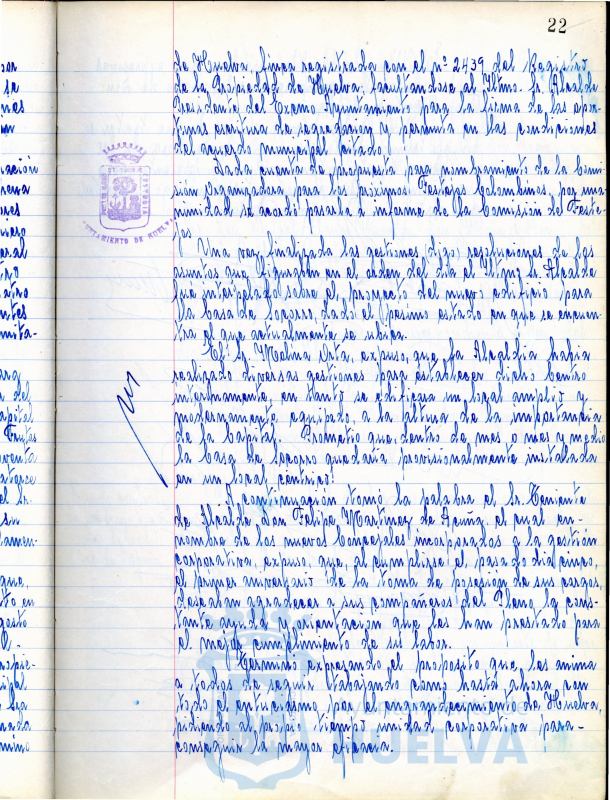 22
de Huelva, finca registrada con el nº 2439 del Registro
de la Propiedad de Huelva, facultandose al Iltmo. Sr. Alcalde
Presidente del Excmo Ayuntamiento para la firma de las opor-
tunas escritura de segregacion y permuta en las condiciones
del acuerdo municipal citado.
Dada cuenta de propuesta para nombramiento de la Comi-
sión Organizadora para los próximos Festejos Colombinos, por una-
nimidad se acordó pasarla a informe de la Comisión de Feste-
jos
Una vez finalizada las gestiones, digo, resoluciones de los
asuntos que figuraban en el orden del dia el Iltmo. Sr. Alcalde
fué interpelado sobre el proyecto del nuevo edificio para
la Casa de Socorro, dado el pesimo estado en que se encuen-
tra el que actualmente se ubica.
El Sr. Molina Orta, expuso, que la Alcaldia habia
realizado diversas gestiones para establecer dicho Centro
interinamente, en tanto se edificara un local amplio y
modernamente equipado, a la altura de la importancia
de la Capital. Prometio que dentro de mes o mes y medio
la Casa de Socorro quedaria provisionalmente instalada
en un local centrico.
A continuación tomó la palabra el Sr. Teniente
de Alcalde Don Felipe Martinez de Acuña, el cual en
nombre de los nuevos Concejales incorporados a la gestión
corporativa, expuso, que, al cumplirse el pasado dia cinco,
el primer aniversario de la toma de posesión de sus cargos,
deseaban agradecer a sus compañeros del Pleno la cons-
tante ayuda y orientacion que les han prestado para
el mejor cumplimiento de su labor.
Termino expresando el proposito que les anima
a todos de seguir trabajando como hasta ahora, con
todo el entusiasmo por el engrandecimiento de Huelva,
pidiendo al propio tiempo unidad corporativa para
conseguir la mayor eficacia.
AYUNTAMIENTO DE HUELVA
HUELVA